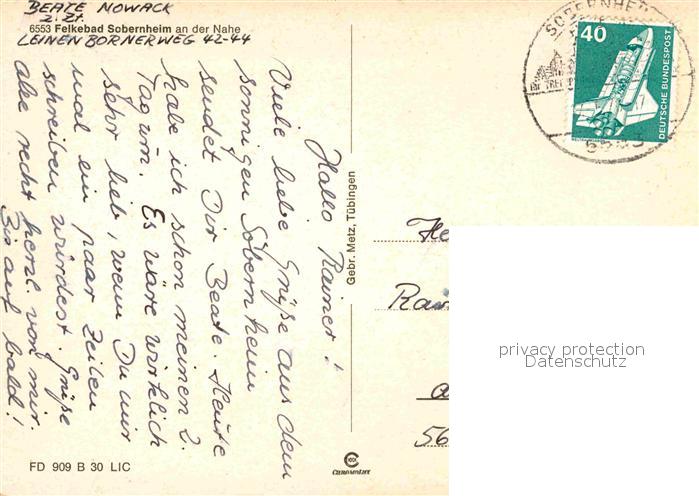 BEATE NOWACK
z. Zt.
6553 Felkebad Sobernheim an der Nahe
LEINENBORNERWEG 42-44
Hallo Rainer!
Viele liebe Grüße aus dem
sonnigen Sobernheim
sendet Dir Beate. Heute
habe ich schon meinen 2.
Tag um. Es wäre wirklich
sehr lieb, wenn Du mir
mal ein paar Zeilen
schreiben würdest. Grüße
alle recht herzl. von mir.
Bis auf bald!
FD 909 B 30 LIC
Gebr. Metz, Tübingen
SOBERNHEIM
40
DEUTSCHE BUNDESPOST
He
Rai
56
privacy protection
Datenschutz